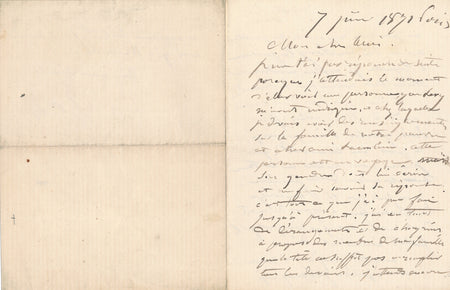 7 juin 1871 Paris
Mon cher ami.
je ne t'ai pas répondu de suite
parceque j'attendais le moment
d'aller voir une personne que
indiquée et chez laquelle
je devais avoir des renseignements
sur la famille de notre pauvre
et cher ami cette
personne est en voyage
son gendre doit lui écrire
et m'en sa réponse.
c'est tout ce que j'ai pu faire
jusqu'à présent. j'ai eu tant
de dérangements et de chagrins
à propos des membres de ma famille
que la tête ne suffit pas à remplir
tous les devoirs. j'attends encore